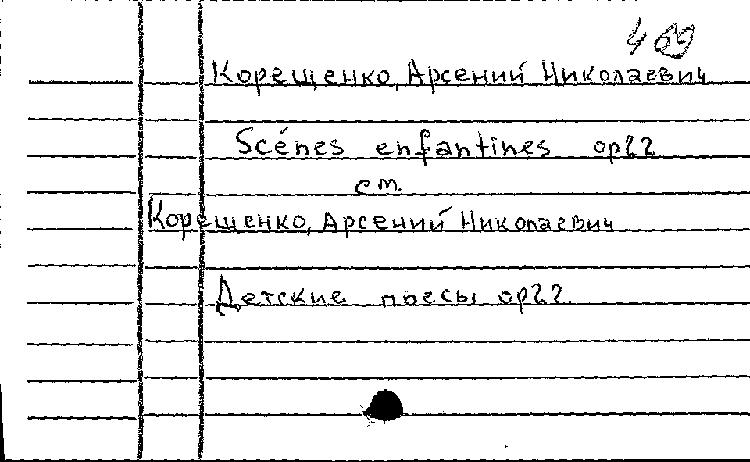 469
Корещенко, Арсений Николаевич
Scénes enfantines op22
см.
Корещенко, Арсений Николаевич
Детские пьесы op22